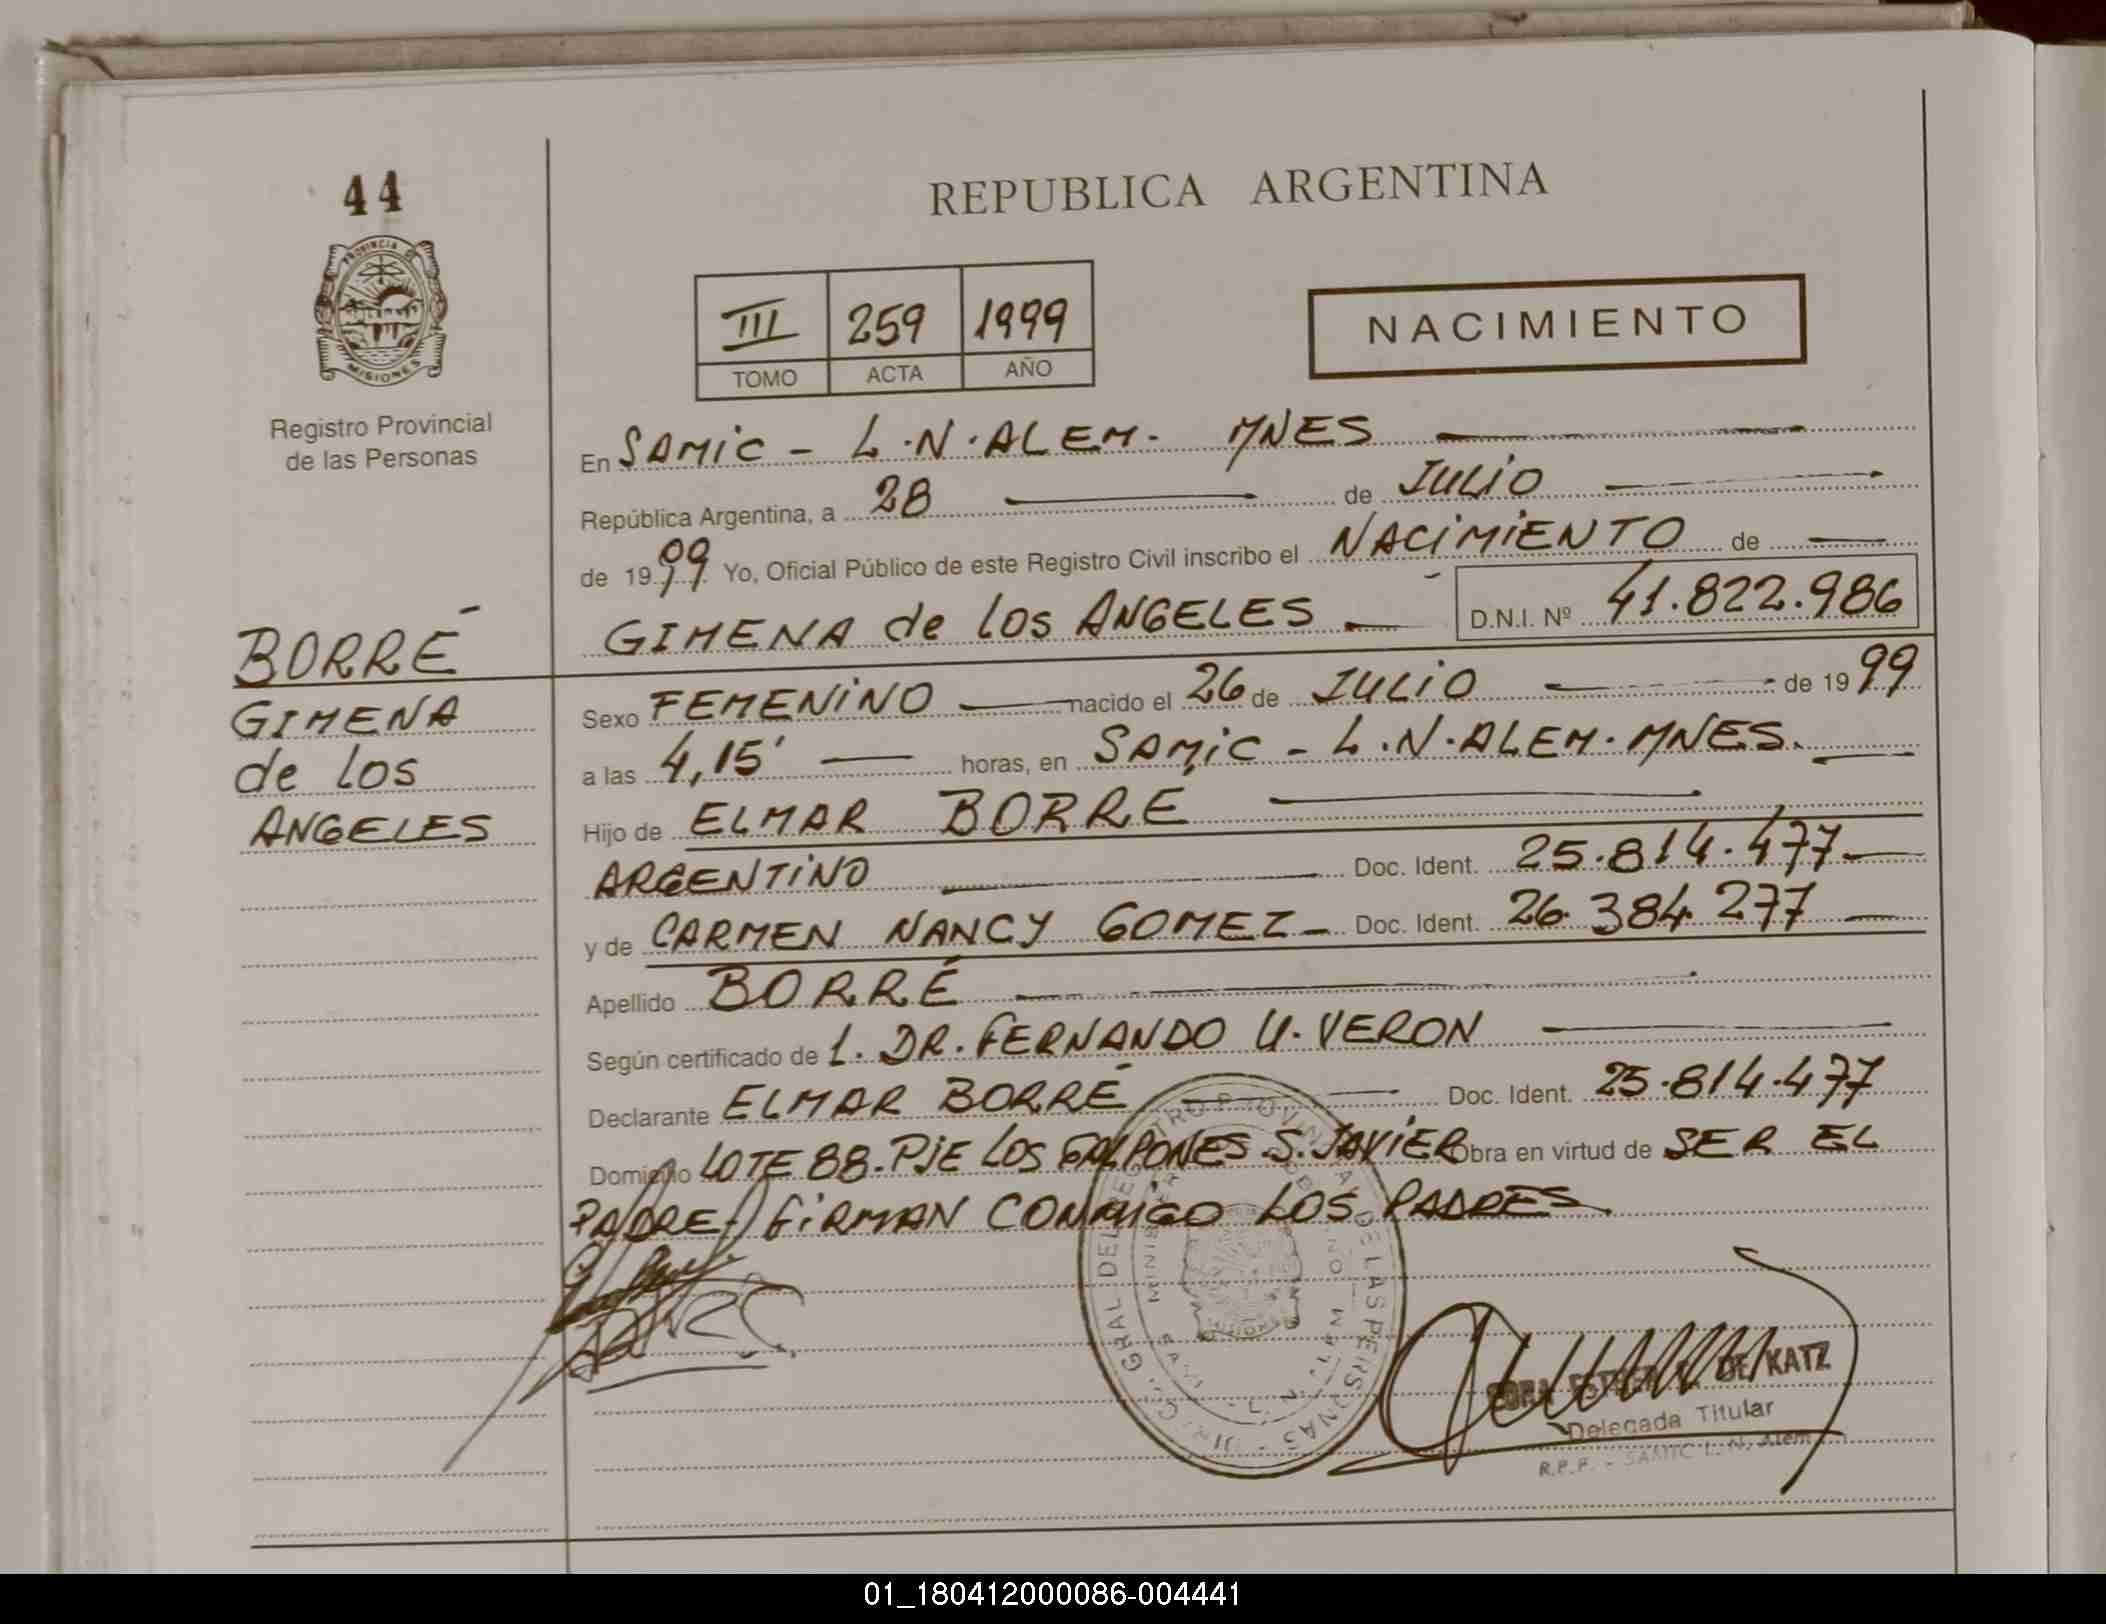 44
REPUBLICA ARGENTINA
PROVINCIA DE
MISIONES
Registro Provincial
de las Personas
III 259 1999
TOMO ACTA AÑO
NACIMIENTO
En SAMIC - L.N.ALEM. MNES
República Argentina, a 28 de JULIO
de 1999 Yo, Oficial Público de este Registro Civil inscribo el NACIMIENTO de
GIMENA de los ANGELES D.N.I. Nº 41.822.986
BORRÉ
GIMENA
de los
ANGELES
Sexo FEMENINO nacido el 26 de JULIO de 1999
a las 4,15' horas, en SAMIC - L.N.ALEM.MNES.
Hijo de ELMAR BORRE
ARGENTINO Doc. Ident. 25.814.477
y de CARMEN NANCY GOMEZ Doc. Ident. 26.384.277
Apellido BORRÉ
Según certificado de 1. DR. FERNANDO U. VERON
Declarante ELMAR BORRÉ Doc. Ident. 25.814.477
Domicilio LOTE 88. PJE LOS GALPONES. S. JAVIER Obra en virtud de SER EL
PADRE. FIRMAN CONMIGO LOS PADRES
DE LAS PERSONAS
DE KATZ
Delegada Titular
R.P.P. - SAMIC L. N. Alem
01_180412000086-004441